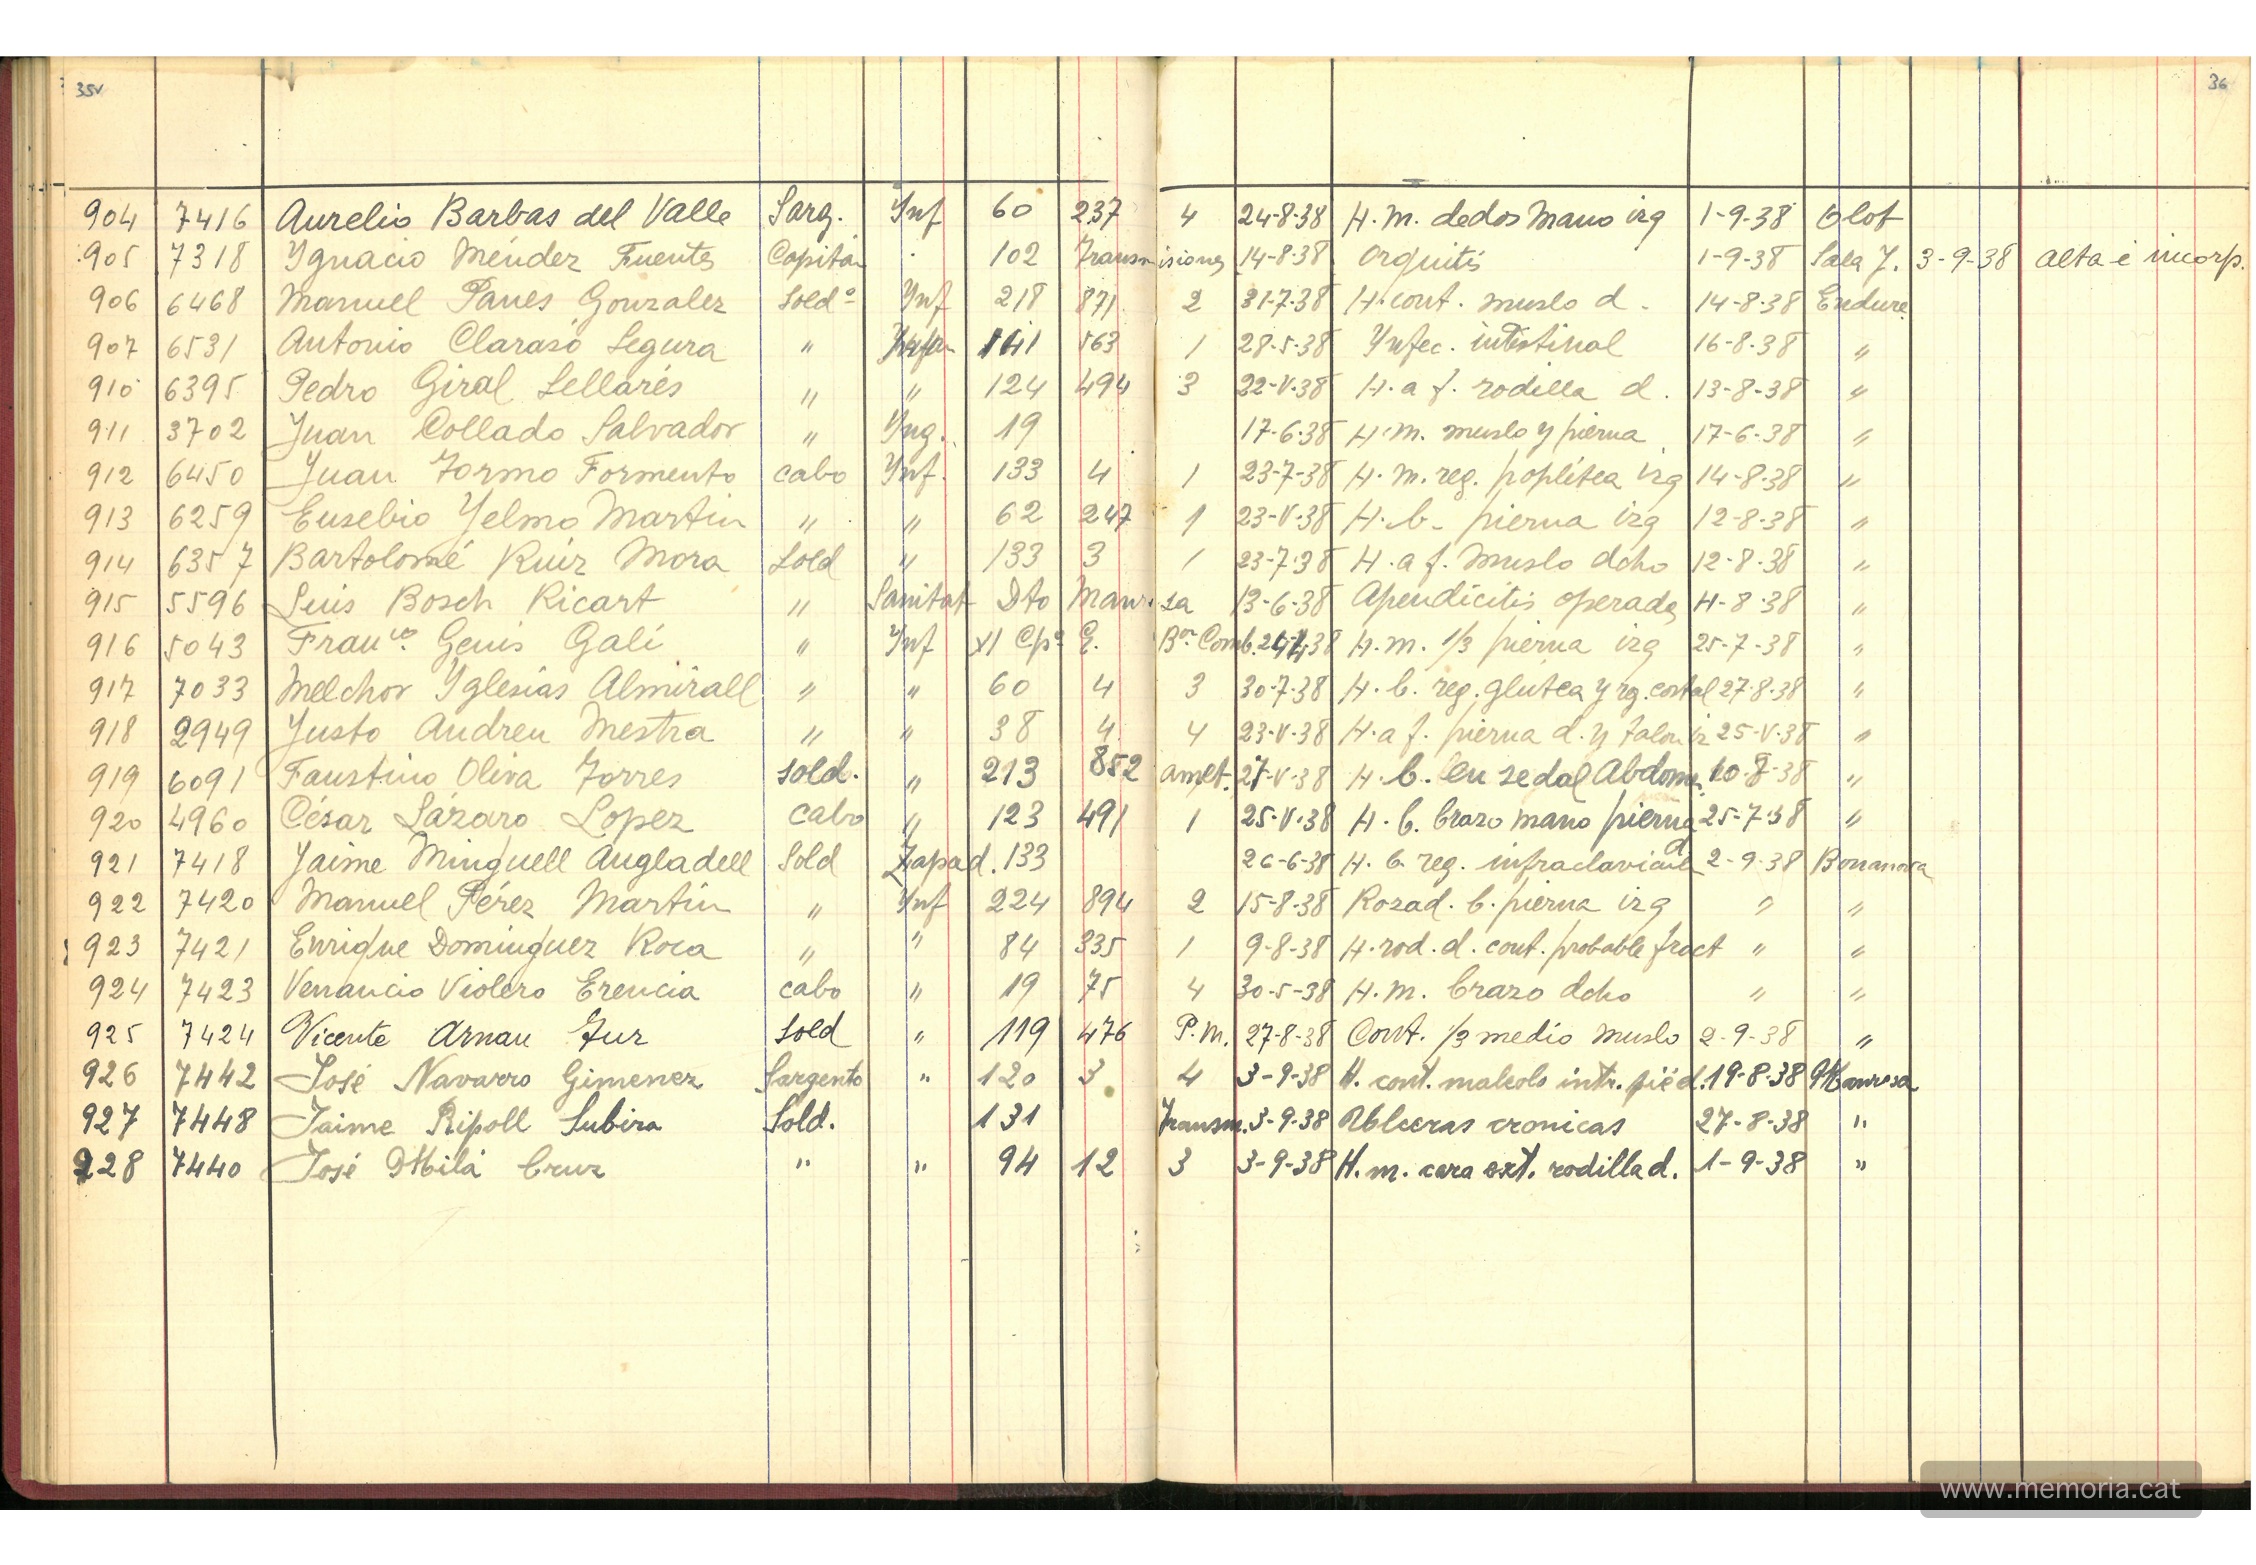 35v
36
904 7416 Aurelio Barbas del Valle Sarg. Ynf 60 237 4 24-8-38 H. m. dedos Mano izq 1-9-38 Olot
905 7318 Ygnacio Méndez Fuentes Capitán . 102 Transmisiones 14-8-38 Orquitis 1-9-38 Sala J. 3-9-38 alta e incorp.
906 6468 Manuel Panes Gonzalez Sold.º Ynf 218 871 2 31-7-38 H. cont. muslo d. 14-8-38 Endure.
907 6531 Antonio Clarasó Segura " 563 1 28-5-38 Ynfec. intestinal 16-8-38 "
910 6395 Pedro Giral Sellarés " " 124 494 3 22-V-38 H. a f. rodilla d. 13-8-38 "
911 3702 Juan Collado Salvador " Yng. 19 17-6-38 H. m. muslo y pierna 17-6-38 "
912 6450 Juan Tormo Formento cabo Ynf. 133 4 1 23-7-38 H. m. reg. poplítea izq 14-8-38 "
913 6259 Eusebio Yelmo Martin " " 62 247 1 23-V-38 H. b. pierna izq 12-8-38 "
914 6357 Bartolomé Ruiz Mora Sold " 133 3 1 23-7-38 H. a f. Muslo dcho 12-8-38 "
915 5596 Luis Bosch Ricart " Sanitat Dto Manresa 13-6-38 Apendicitis operada 4-8-38 "
916 5043 Franco. Genis Galí " Ynf XI Cpo. E. Bon Comb. H. m. 1/3 pierna izq 25-7-38 "
917 7033 Melchor Yglesias Almirall " " 60 4 3 30-7-38 H. b. reg. glutea y rg. costal 27-8-38 "
918 2949 Justo Andreu Mestra " " 38 4 4 23-V-38 H. a f. pierna d. y talon iz 25-V-38 "
919 6091 Faustino Oliva Torres sold. " 213 852 amet. 27-V-38 H. b. en sedal Abdom. 10-8-38 "
920 4960 César Lázaro Lopez cabo " 123 491 1 25-V-38 H. b. brazo mano pierna d 25-7-38 "
921 7418 Jaime Minguell Angladell Sold Zapad. 133 26-6-38 H. b. reg. infraclavicul 2-9-38 Bonanova
922 7420 Manuel Pérez Martín " Ynf 224 894 2 15-8-38 Rozad. b. pierna izq " "
923 7421 Enrique Dominguez Roca " " 84 335 1 9-8-38 H. rod. d. cont. probable fract " "
924 7423 Venancio Violero Erencia cabo " 19 75 4 30-5-38 H. m. brazo dcho " "
925 7424 Vicente Arnau Fur Sold " 119 476 P. M. 27-8-38 Cont. 1/3 medio muslo 2-9-38 "
926 7442 José Navarro Gimenez Sargento " 120 3 4 3-9-38 H. cont. maleolo intr. pié d. 19-8-38 Manresa
927 7448 Jaime Ripoll Subira Sold. 131 Transm. 3-9-38 Ulceras cronicas 27-8-38 "
928 7440 José Milá Cruz " " 94 12 3 3-9-38 H. m. cara ext. rodilla d. 1-9-38 "
www.memoria.cat